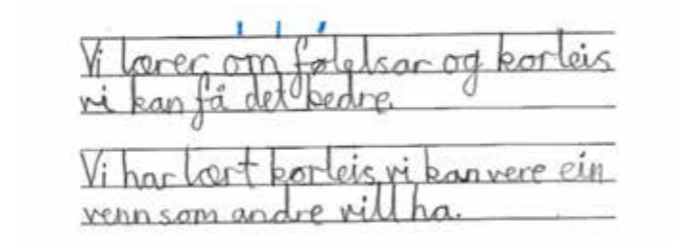 Vi lærer om følelsar og korleis
vi kan få det bedre.
Vi har lært korleis vi kan vere ein
venn som andre vill ha.